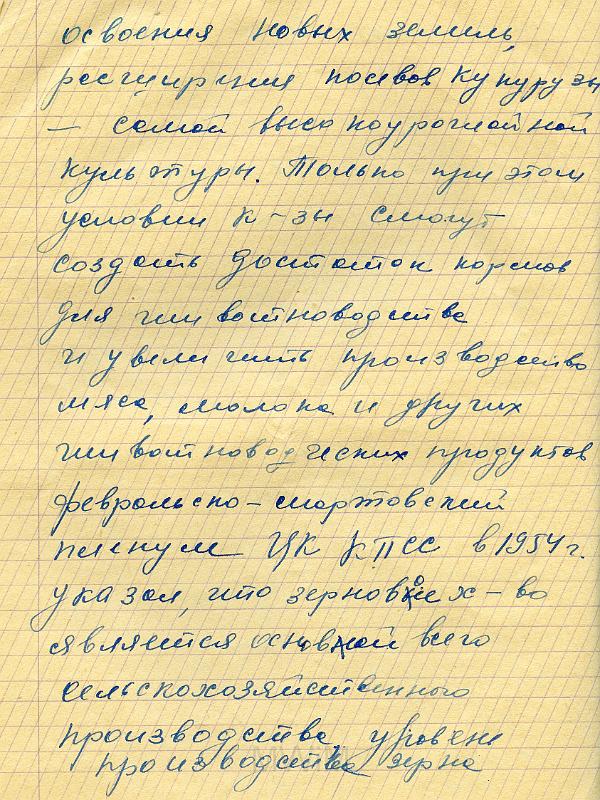 освоения новых земель,
расширения посевов кукурузы
– самой высокоурожайной
культуры. Только при этом
условии к-зы смогут
создать достаток кормов
для животноводства
и увеличить производство
мяса, молока и других
животноводческих продуктов
февральско-мартовский
пленум ЦК КПСС в 1954 г.
указал, что зерновое х-во
является основой всего
сельскохозяйственного
производства, уровень
производства зерна